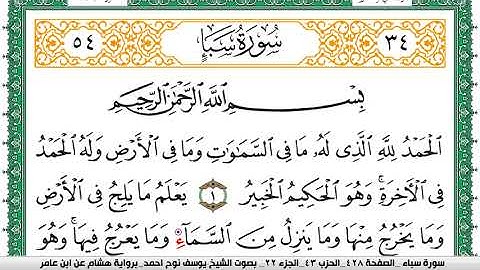 ٣٤ سُورَةُ سَبَإٍ ٥٤
بِسْمِ اللَّهِ الرَّحْمَٰنِ الرَّحِيمِ
الْحَمْدُ لِلَّهِ الَّذِى لَهُۥ مَا فِى السَّمَٰوَٰتِ وَمَا فِى الْأَرْضِ وَلَهُ الْحَمْدُ
فِى الْأَخِرَةِ ۚ وَهُوَ الْحَكِيمُ الْخَبِيرُ ١ يَعْلَمُ مَا يَلِجُ فِى الْأَرْضِ
وَمَا يَخْرُجُ مِنْهَا وَمَا يَنزِلُ مِنَ السَّمَآءِ وَمَا يَعْرُجُ فِيهَا ۚ وَهُوَ
سورة سباء_ الصفحة ٤٢٨_ الحزب ٤٣_ الجزء ٢٢_ بصوت الشيخ يوسف نوح احمد_ برواية هشام عن ابن عامر